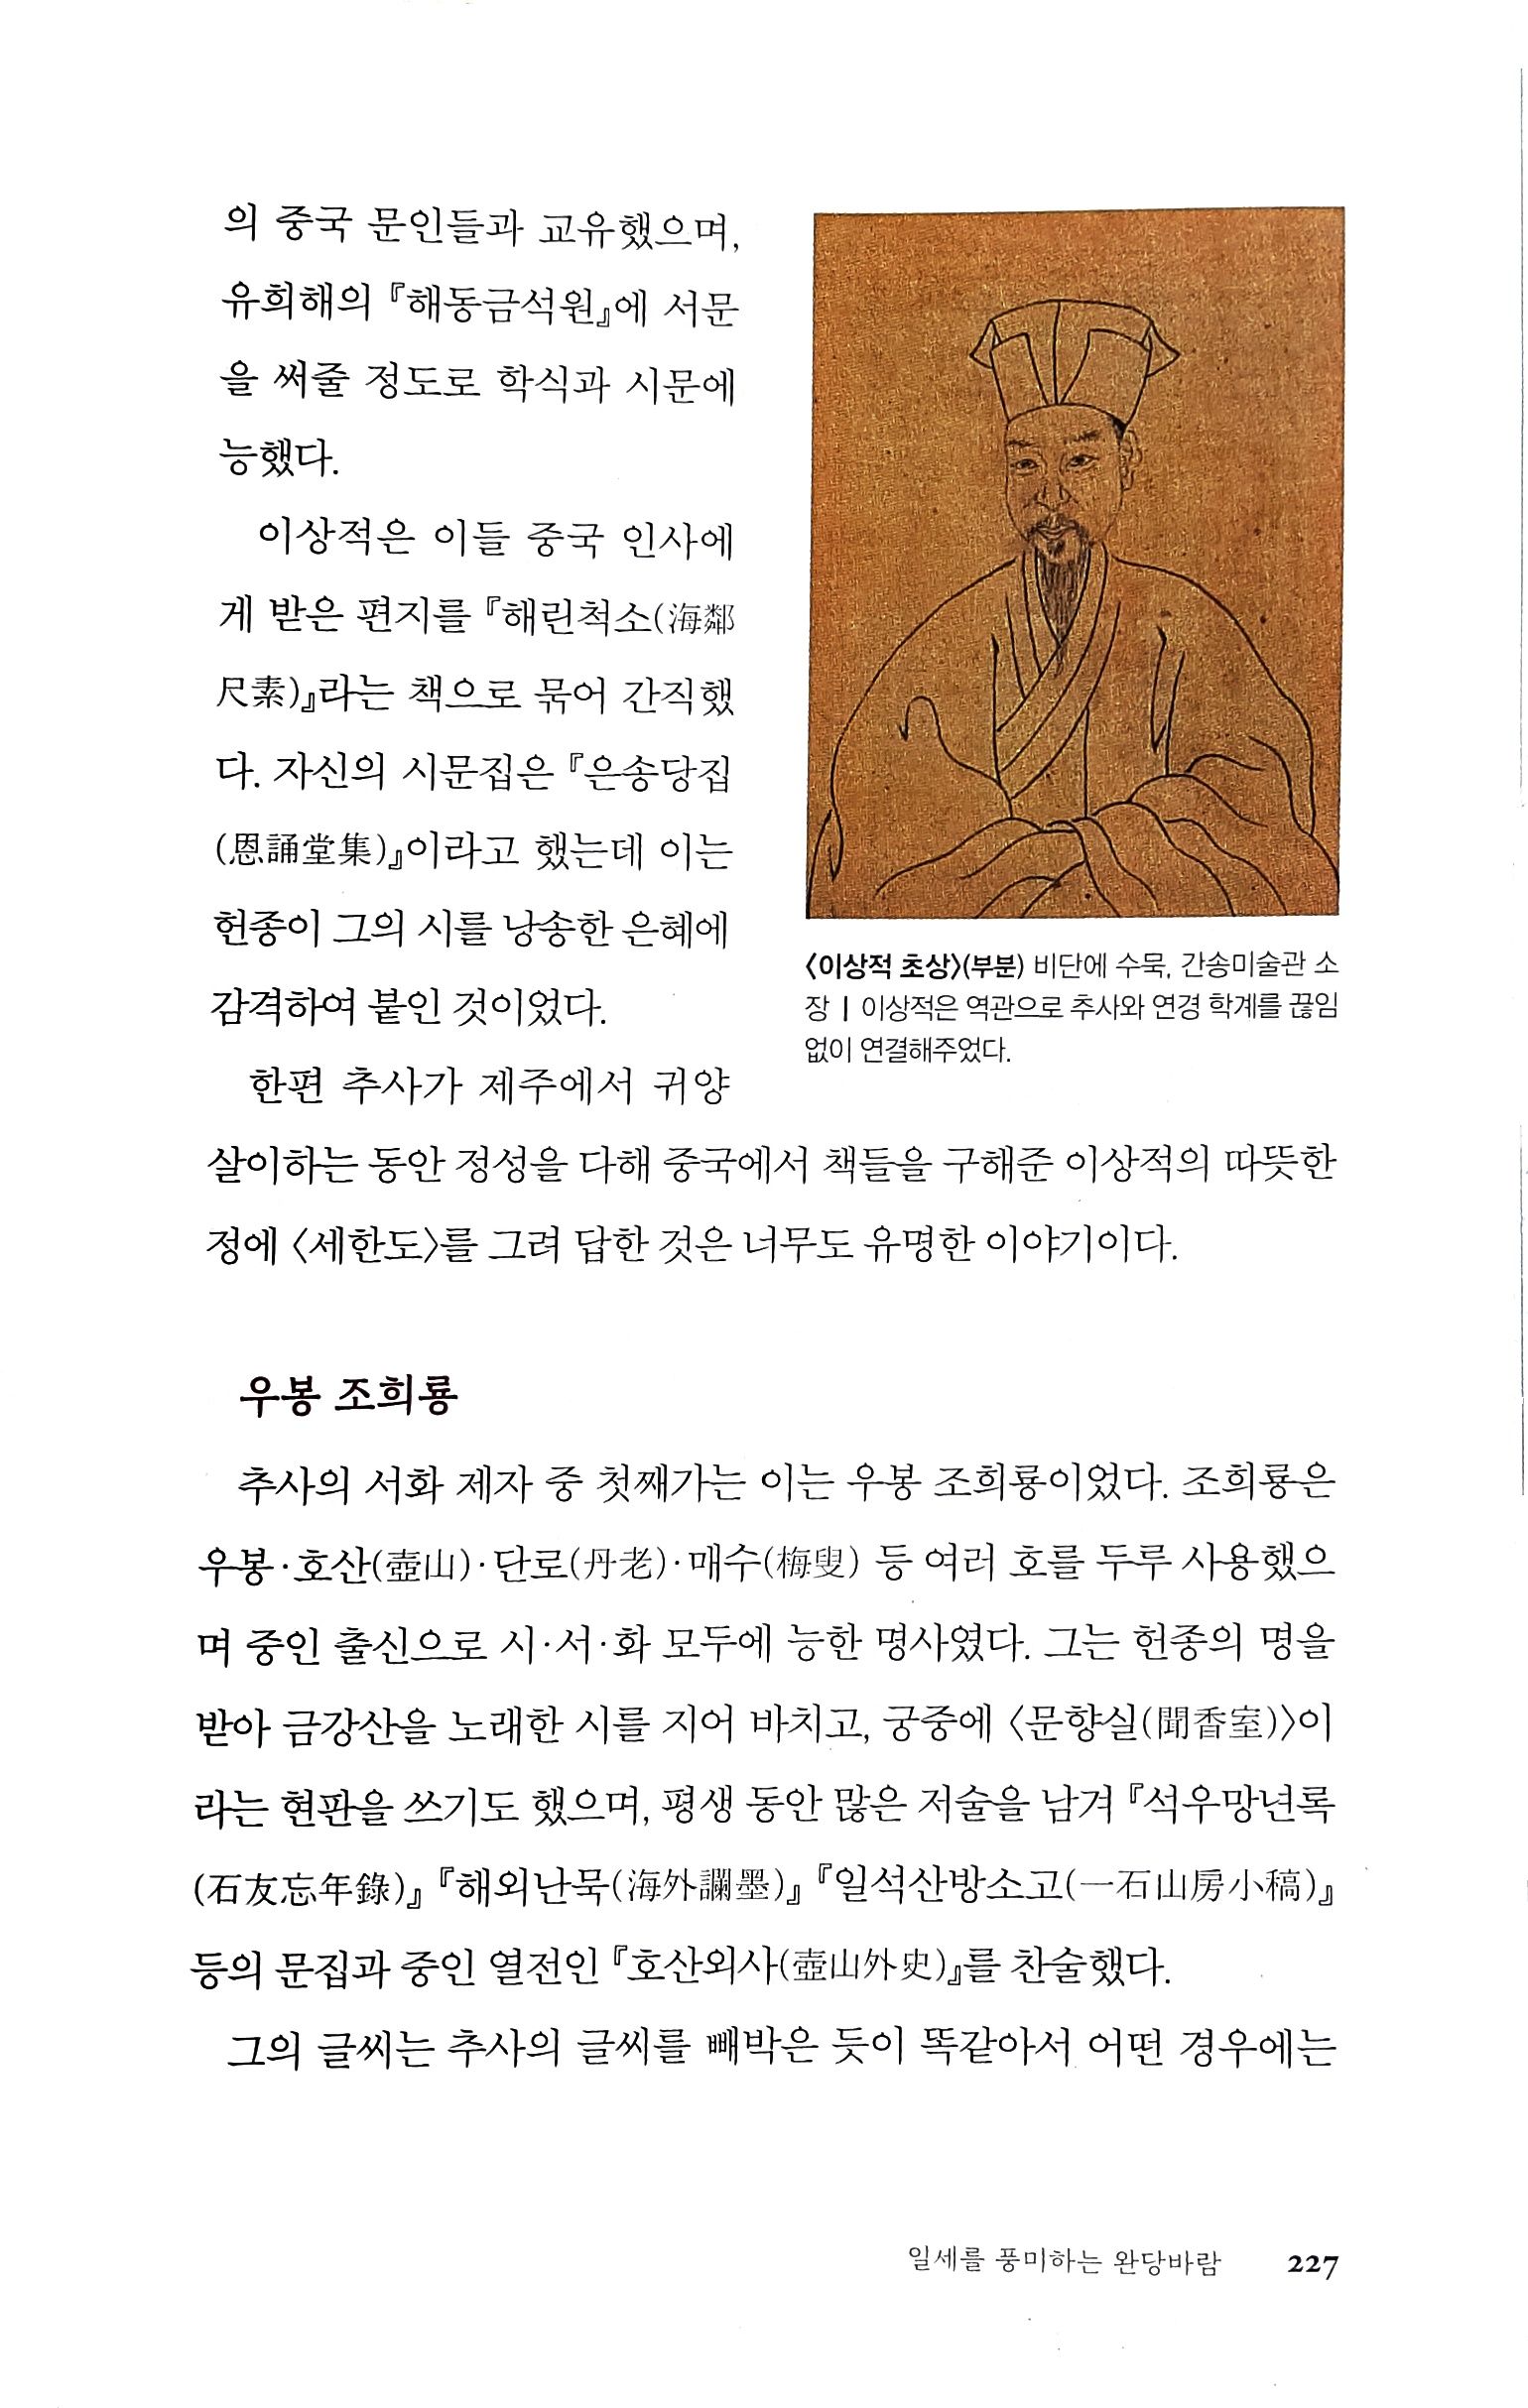 의 중국 문인들과 교유했으며,
유희해의 『해동금석원』에 서문
을 써줄 정도로 학식과 시문에
능했다.
이상적은 이들 중국 인사에
게 받은 편지를 『해린척소(海鄰
尺素)』라는 책으로 묶어 간직했
다. 자신의 시문집은 『은송당집
(恩誦堂集)』이라고 했는데 이는
헌종이 그의 시를 낭송한 은혜에
감격하여 붙인 것이었다.
한편 추사가 제주에서 귀양
살이하는 동안 정성을 다해 중국에서 책들을 구해준 이상적의 따뜻한
정에 〈세한도〉를 그려 답한 것은 너무도 유명한 이야기이다.
〈이상적 초상〉(부분) 비단에 수묵, 간송미술관 소
장 | 이상적은 역관으로 추사와 연경 학계를 끊임
없이 연결해주었다.
우봉 조희룡
추사의 서화 제자 중 첫째가는 이는 우봉 조희룡이었다. 조희룡은
우봉·호산(壺山)·단로(丹老)·매수(梅叟) 등 여러 호를 두루 사용했으
며 중인 출신으로 시·서·화 모두에 능한 명사였다. 그는 헌종의 명을
받아 금강산을 노래한 시를 지어 바치고, 궁중에 〈문향실(聞香室)〉이
라는 현판을 쓰기도 했으며, 평생 동안 많은 저술을 남겨 『석우망년록
(石友忘年錄)』 『해외난묵(海外讕墨)』 『일석산방소고(一石山房小稿)』
등의 문집과 중인 열전인 『호산외사(壺山外史)』를 찬술했다.
그의 글씨는 추사의 글씨를 빼박은 듯이 똑같아서 어떤 경우에는
일세를 풍미하는 완당바람 227